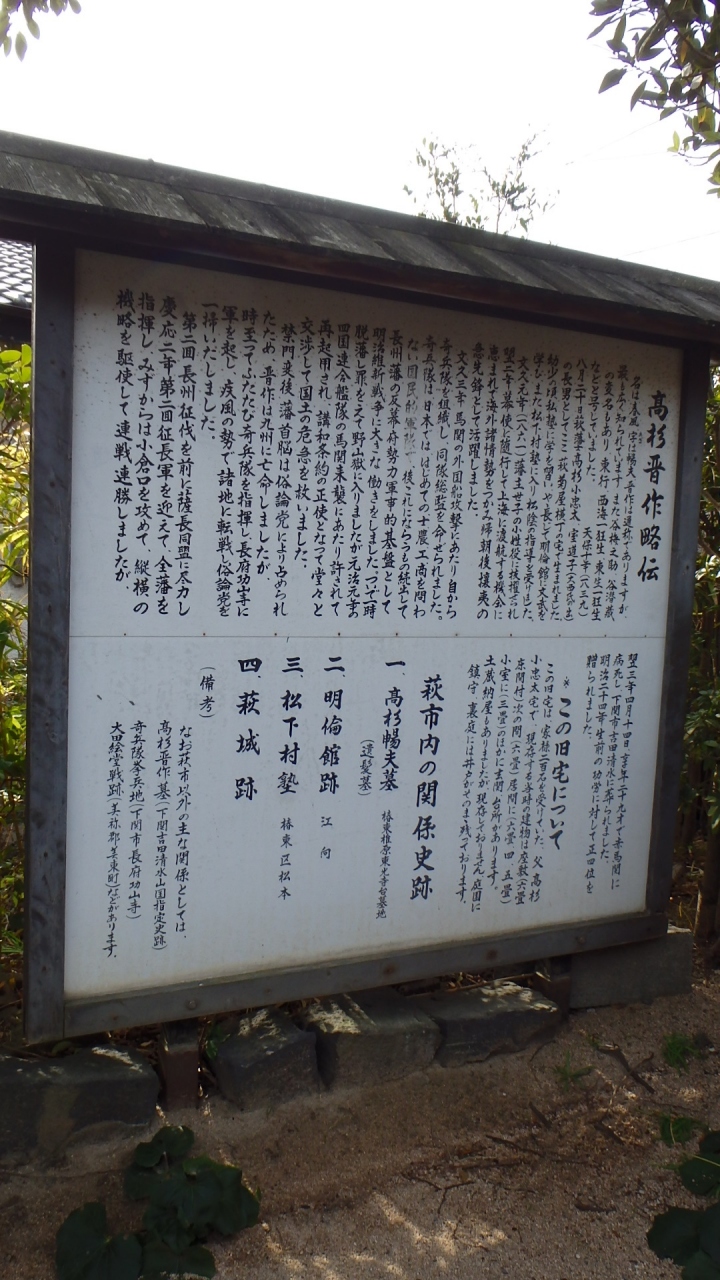 高杉晋作略伝
名は春風、字は暢夫、晋作は通称でありますが、
最も広く知られています。また谷梅之助、谷潜蔵、
の変名もあり、東行、西海一狂生、東生一狂生
などと号していました。 天保十年(一八三九)
八月二十日萩藩士高杉小忠太
の長男としてここ萩菊屋横丁の宅で生まれました。
幼少の頃私塾に学を習い、やや長じて明倫館に文武を
学び、また松下村塾に入り松陰の指導を受けました。
文久元年(一八六一)藩主世子の小姓役に抜擢され
翌二年、幕使に随行して上海に渡航する機会に
恵まれ、海外諸情勢をつかみ、帰朝後攘夷の
急先鋒として活躍しました。
文久三年、馬関の外国船攻撃にあたり、自から
奇兵隊を組織し、同隊総監を命ぜられました。
奇兵隊は、日本でははじめての士農工商を問わ
ない国民的軍隊で、後これにならうもの続出して
長州藩の反幕府勢力軍事的基盤として
明治維新戦争に大きな働きをしました。ついで一時
脱藩し罪をえて野山獄に入りましたが、元治元年の
四国連合艦隊の馬関来襲にあたり許されて
再起用され、講和条約の正使となつて堂々と
交渉して国土の危急を救いました。
禁門変後、藩首脳は俗論党により占められ
たため、晋作は九州に亡命しましたが、
時至つてふたたび奇兵隊を指揮し、長府功山寺に
軍を起し、疾風の勢で諸地に転戦、俗論党を
一掃いたしました。
第二回長州征伐を前に薩長同盟に尽力し
慶応二年第二回征長軍を迎えて全藩を
指揮し、みずからは小倉口を攻めて、縦横の
機略を駆使して連戦、連勝しましたが
翌三年四月十四日、享年二十九才で赤馬関に
病死し、下関市吉田清水に葬られました。
明治二十四年生前の功労に対して正四位を
贈られました。
※この旧宅について
この旧宅は、家禄二百石を受けていた、父高杉
小忠太宅で、現存する当時の建物は座敷(六畳
床間付)次の間(六畳)居間に(六畳、四、五畳)
小室に(三畳)のほかに玄関、台所があります。
土蔵、納屋もありましたが、現存しておりません、庭園に
鎮守、裏庭には井戸がそのまま残っております。
萩市内の関係史跡
一、高杉暢夫墓 椿東椎原東光寺台墓地
(遺髪墓)
二、明倫館跡 江向
三、松下村塾 椿東区松本
四、萩城跡
(備考)
なお萩市以外の主な関係としては、
高杉晋作墓(下関吉田清水山国指定史跡)
奇兵隊挙兵地(下関市長府功山寺)
大田絵堂戦跡(美祢郡美東町)などがあります。